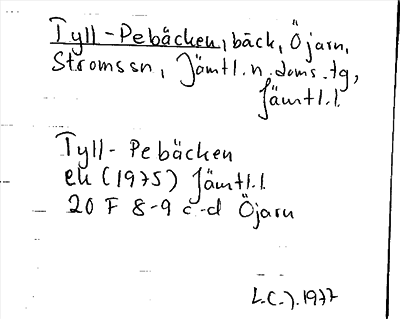 Tyll-Pebäcken, bäck, Öjarn,
Stromssn, Jämtl. n. doms. tg,
Jämtl. l.
Tyll- Pebäcken
ek (1975) Jämtl. l.
20 F 8-9 c-d Öjarn
1977